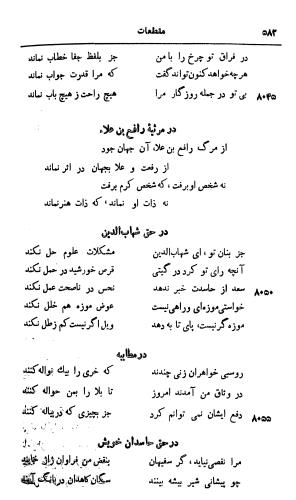 ۵۸۲
مقطعات
در فراق تو چرخ را با من جز بلفظ جفا خطاب نماند
هر چه خواهد کنون تواند گفت که مرا قدرت جواب نماند
۸۰۴۵ بی تو در جمله روزگار مرا هیچ راحت ز هیچ باب نماند
در مرثیهٔ رافع بن علاء
از مرگ رافع بن علا، آن جهان جود
از رفعت و علا بجهان در اثر نماند
نه شخص او برفت، که شخص کرم برفت
نه ذات او نماند، که ذات هنر نماند
در حق شهاب‌الدین
جز بنان تو، ای شهاب‌الدین مشکلات علوم حل نکند
آنچه رای تو کرد در گیتی قرص خورشید در حمل نکند
۸۰۵۰ سعد از حاسدت خبر ندهد نحس در ناصحت عمل نکند
خواستی موزه‌ای و راهی نیست عوض موزه هم خلل نکند
موزه گر نیست، پای تا به دهد ویل اگر نیست کم ز طل نکند
در مطایبه
روسبی خواهران زنی چندند که خری را بیك نواله کنند
در وثاق من آمدند امروز تا بلا را بمن حواله کنند
۸۰۵۵ دفع ایشان نمی توانم کرد جز بچیزی که در پیاله کنند
در حق حاسدان خویش
مرا نقصی نباید، گر سفیهان بنقض من فراوان راز خایند
چو پیشانی شیر بیشه بینند سگان کاهدان در بانگ آیند